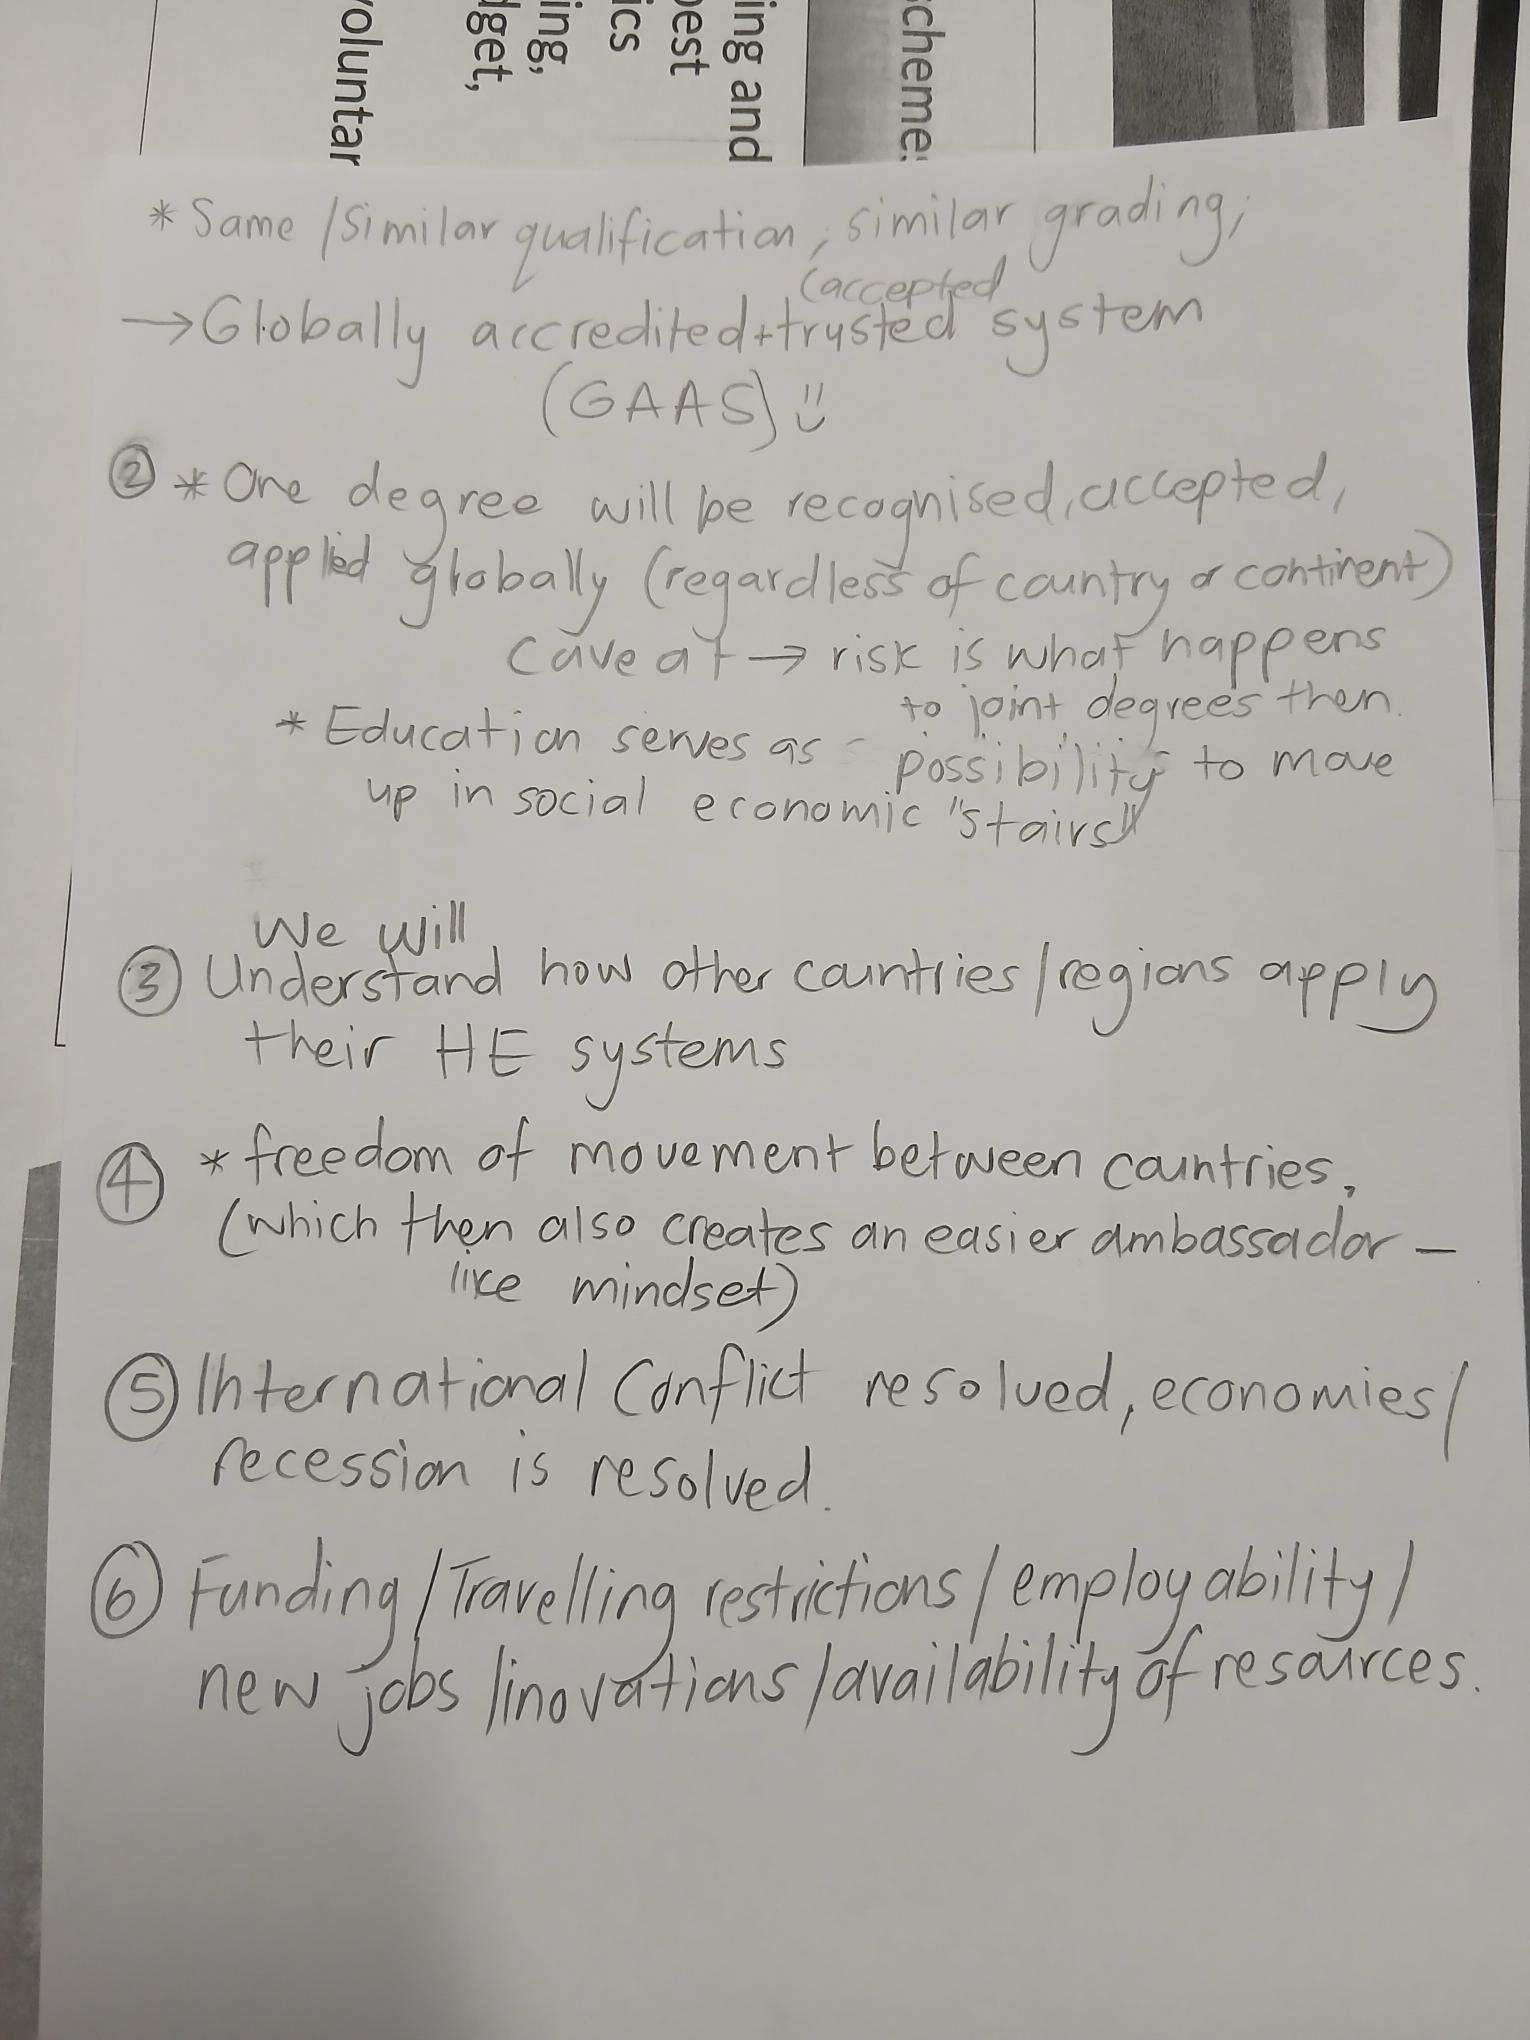 cheme
ing and
best
ics
ing,
dget,
voluntar
* Same / Similar qualification, similar grading;
(accepted
→ Globally accredited + trusted system
(GAAS) ü
② * One degree will be recognised, accepted,
applied globally (regardless of country or continent)
Caveat → risk is what happens
to joint degrees then.
* Education serves as possibility to move
up in social economic "stairs"
We will
③ Understand how other countries / regions apply
their HE systems
④ * freedom of movement between countries,
(which then also creates an easier ambassador –
like mindset)
⑤ International Conflict resolved, economies /
recession is resolved.
⑥ Funding / Travelling restrictions / employability /
new jobs / inovations / availability of resources.